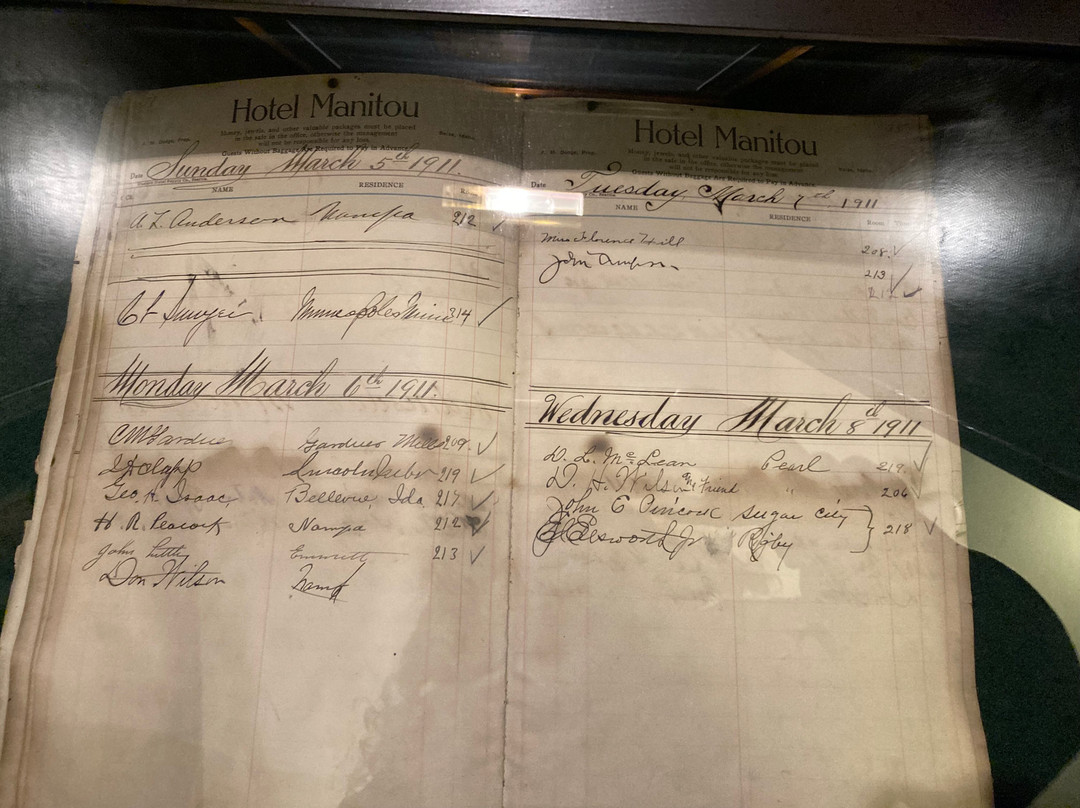 Hotel Manitou
Money, jewels, and other valuable packages must be placed
in the safe in the office, otherwise the management
will not be responsible for any loss.
Boise, Idaho,
Guests Without Baggage Are Required to Pay in Advance
Date Sunday March 5th 1911.
NAME RESIDENCE
A. L. Anderson Nampa 212 ✓
Minneapolis Minn 214 ✓
Monday March 6th 1911.
Gardner 209. ✓
Lincoln 219 ✓
Geo. H. Isaac, Bellevue, Ida. 217 ✓
H. R. Peacock Nampa 212
John Emmett 213 ✓
Don Wilson
Hotel Manitou
Money, jewels, and other valuable packages must be placed
in the safe in the office, otherwise the management
will not be responsible for any loss.
Boise, Idaho,
Guests Without Baggage Are Required to Pay in Advance
Date Tuesday March 7th, 1911
NAME RESIDENCE Room
Miss Florence Hill 208. ✓
John 213 ✓
✓
Wednesday March 8th 1911
D. L. McLean Pearl 219 ✓
D. H. Wilson & Friend " 206
John E Pincock Sugar City } 218 ✓
Ellsworth Jr Rigby